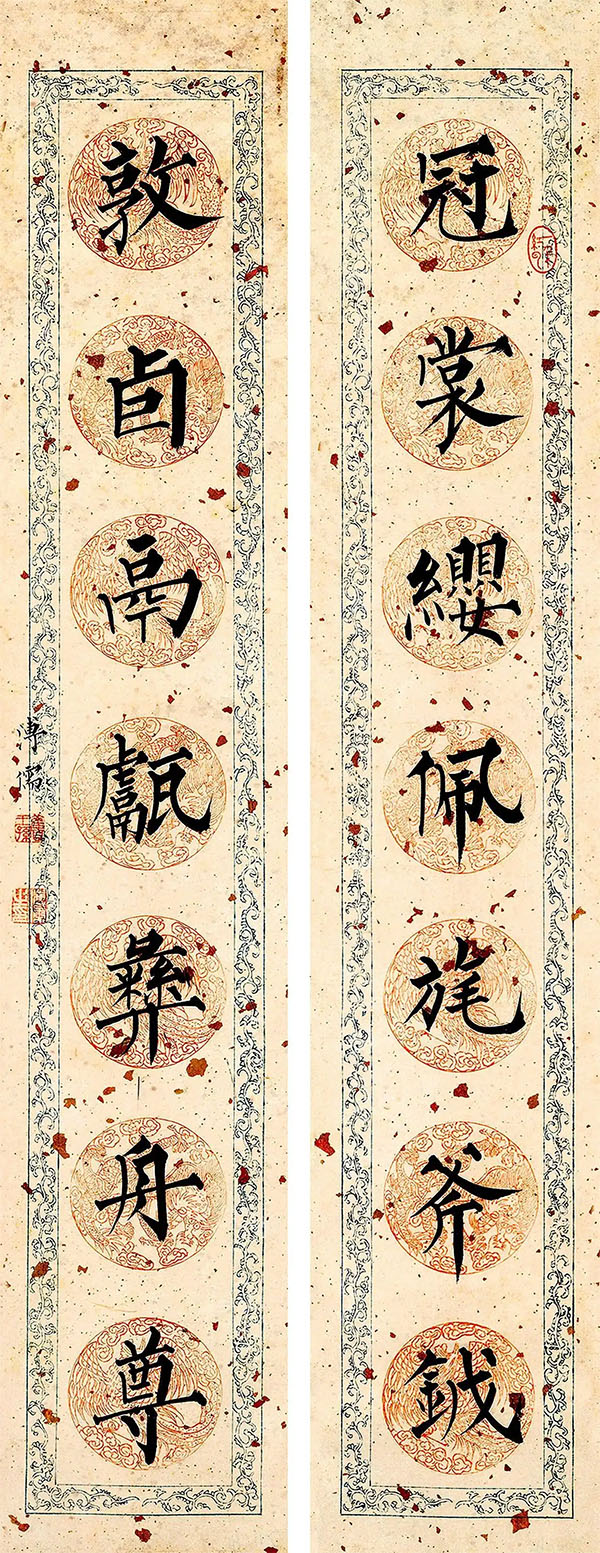 冠裳纓佩旄斧鉞
敦卣鬲甗彝舟尊
溥儒